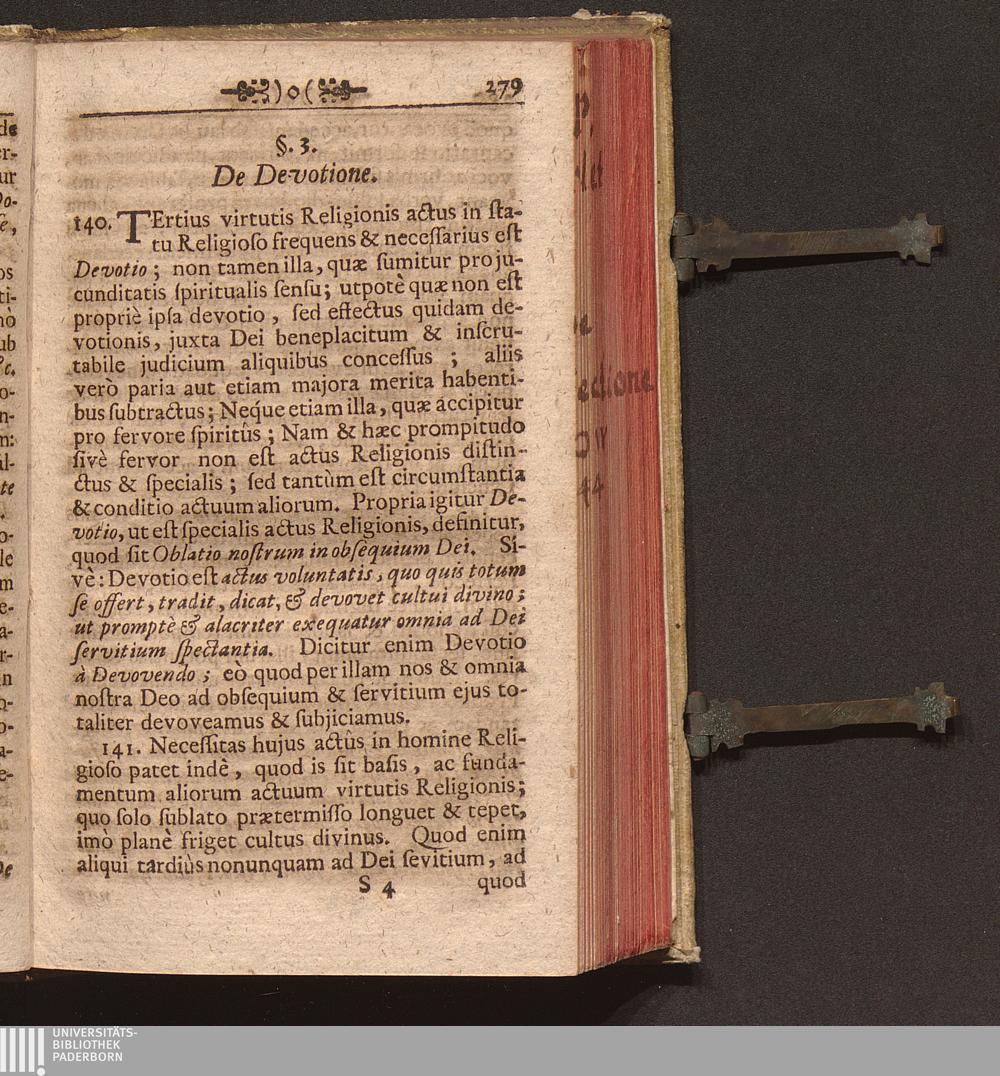 )o( 279
§. 3.
De Devotione.
140. TErtius virtutis Religionis actus in ſta-
tu Religioſo frequens & neceſſarius eſt
Devotio; non tamen illa, quæ ſumitur pro ju-
cunditatis ſpiritualis ſenſu; utpotè quæ non eſt
propriè ipſa devotio, ſed effectus quidam de-
votionis, juxta Dei beneplacitum & inſcru-
tabile judicium aliquibus conceſſus; aliis
verò paria aut etiam majora merita habenti-
bus ſubtractus; Neque etiam illa, quæ accipitur
pro fervore ſpiritûs; Nam & hæc prompitudo
ſivè fervor non eſt actus Religionis diſtin-
ctus & ſpecialis; ſed tantùm eſt circumſtantia
& conditio actuum aliorum. Propria igitur De-
votio, ut eſt ſpecialis actus Religionis, definitur,
quod ſit Oblatio noſtrum in obſequium Dei. Si-
vè: Devotio eſt actus voluntatis, quo quis totum
ſe offert, tradit, dicat, & devovet cultui divino;
ut promptè & alacriter exequatur omnia ad Dei
ſervitium ſpectantia. Dicitur enim Devotio
à Devovendo; eò quod per illam nos & omnia
noſtra Deo ad obſequium & ſervitium ejus to-
taliter devoveamus & ſubjiciamus.
141. Neceſſitas hujus actùs in homine Reli-
gioſo patet indè, quod is ſit baſis, ac funda-
mentum aliorum actuum virtutis Religionis;
quo ſolo ſublato prætermiſſo longuet & tepet,
imò planè friget cultus divinus. Quod enim
aliqui tardiùs nonunquam ad Dei ſevitium, ad
S 4 quod
UNIVERSITÄTS-
BIBLIOTHEK
PADERBORN